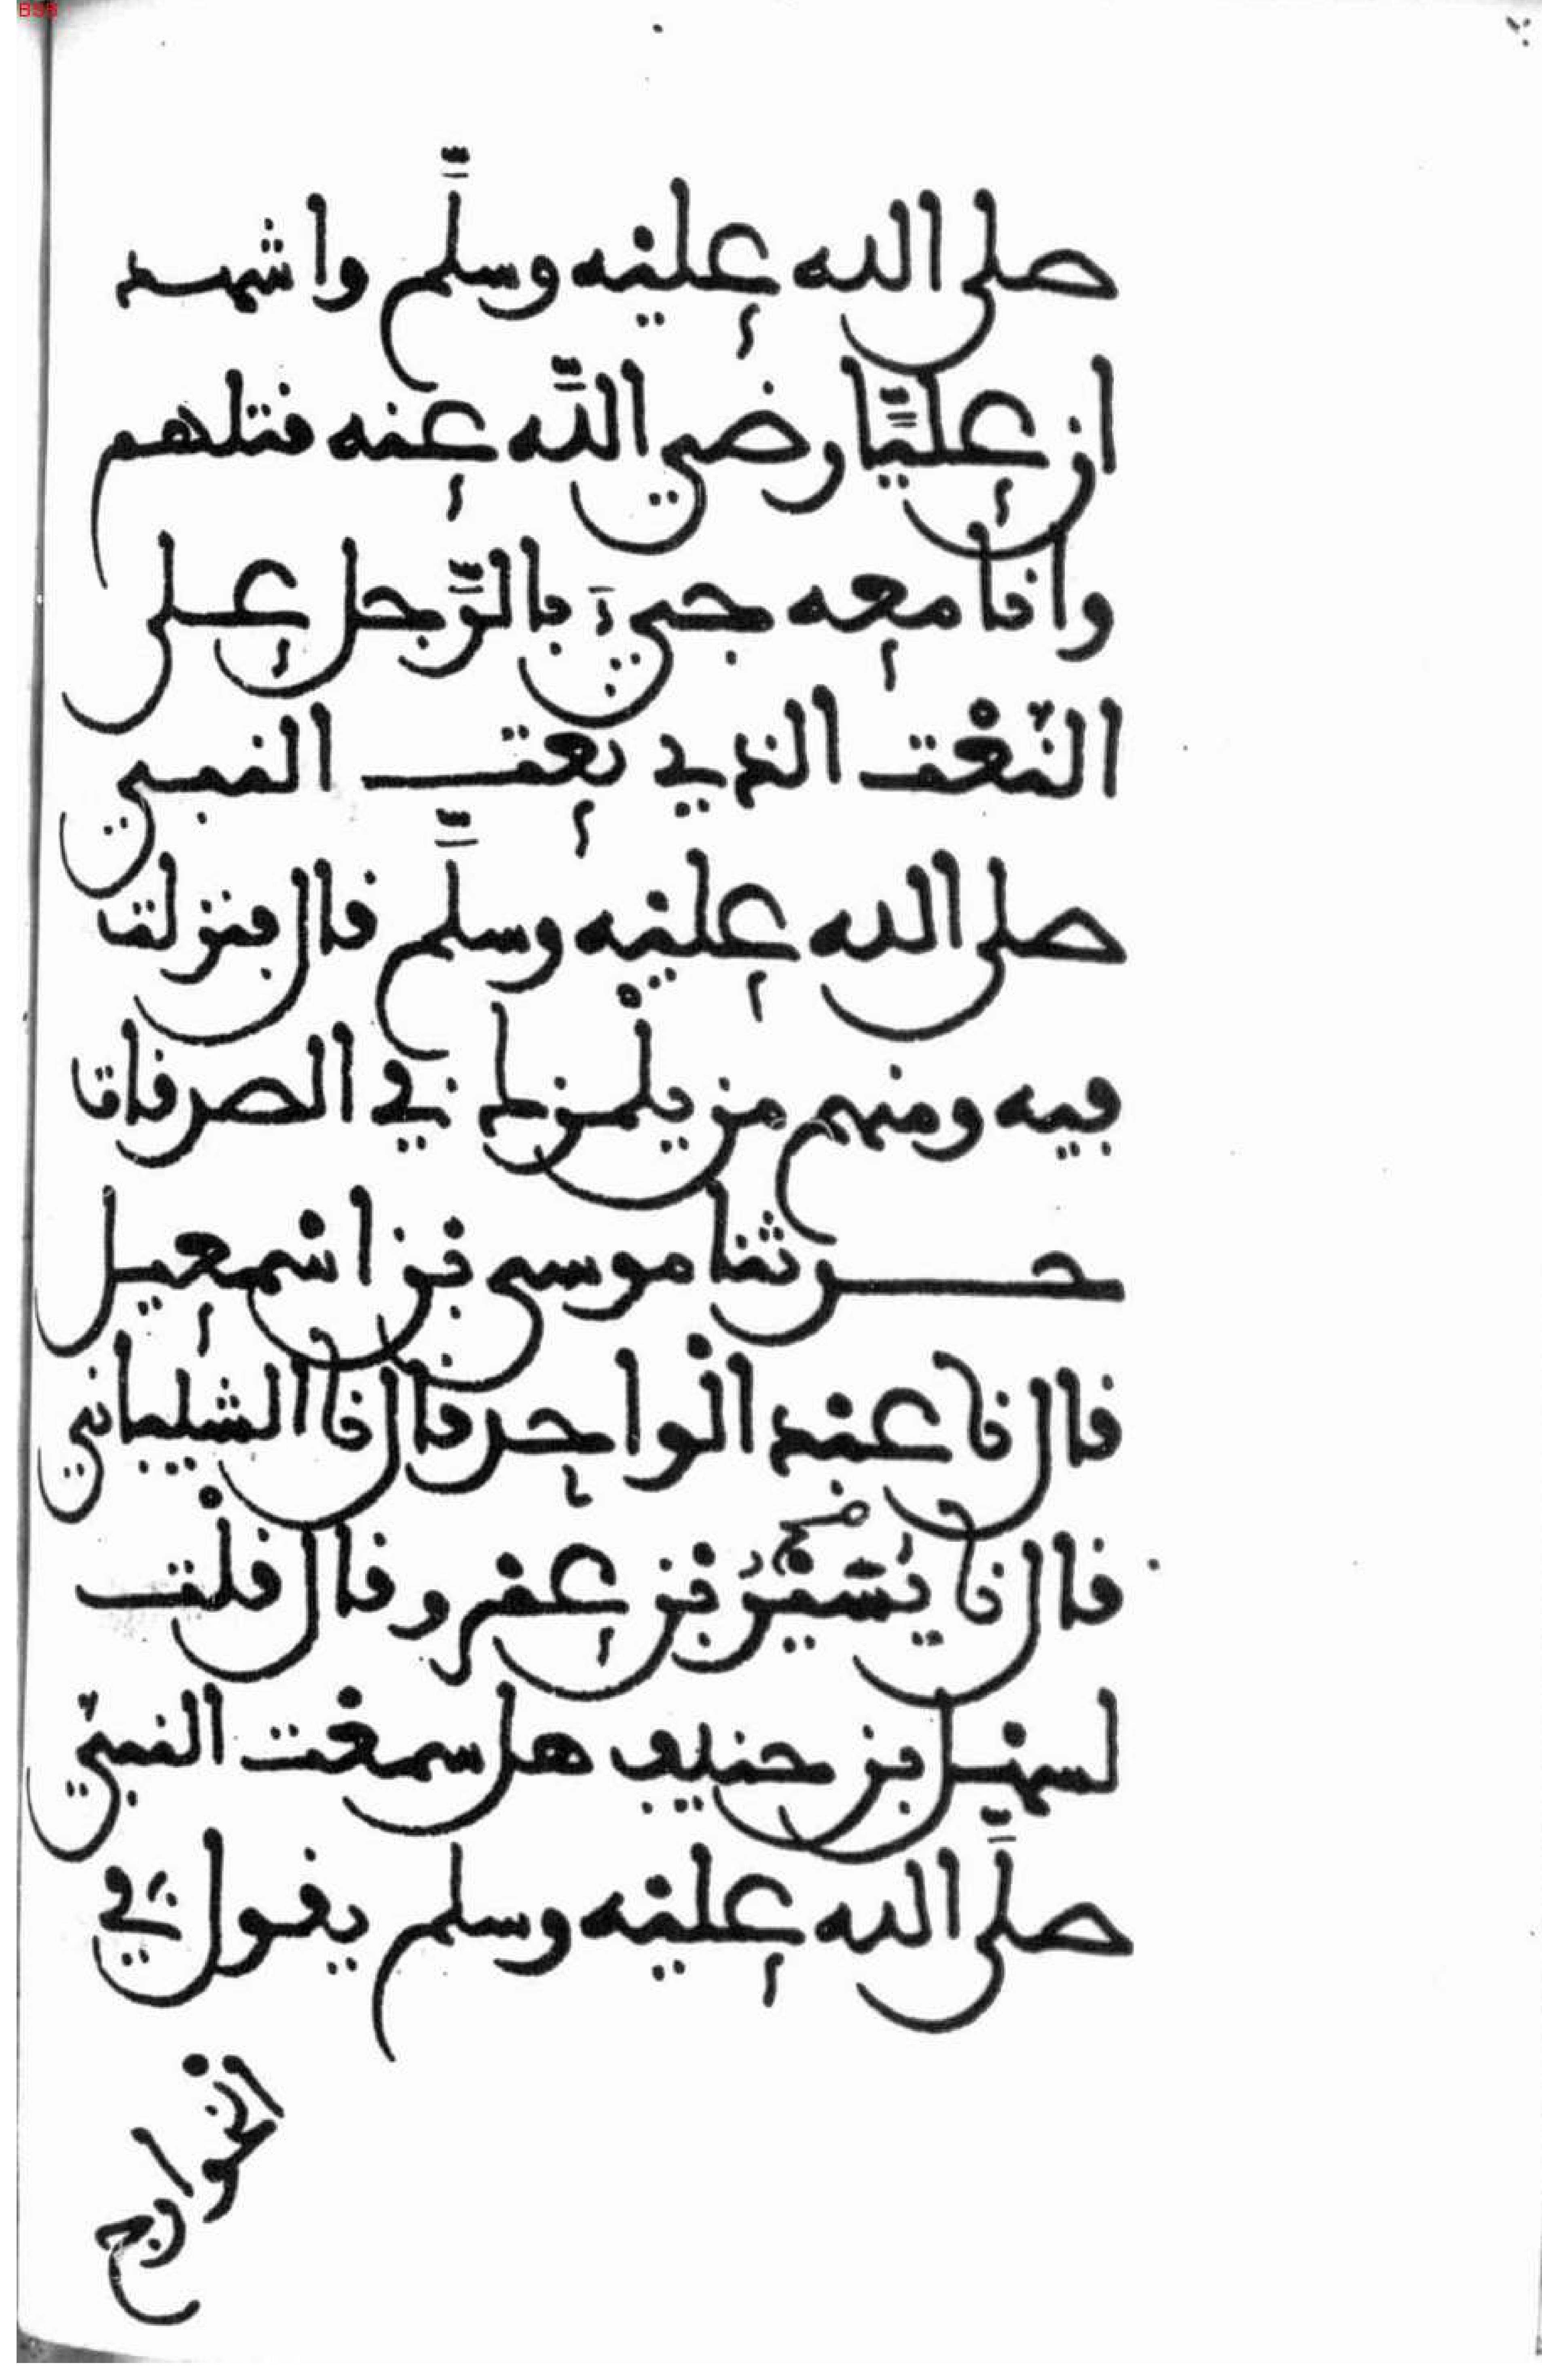 صلى الله عليه وسلَّم واشهد
ان عليًّا رضي اللَّه عنه قتلهم
وانا معه جيءَ بالرَّجل على
النَّعْت الذي نعت النبي
صلى الله عليْه وسلَّم قال فنزلت
فيه ومنهم من يلْمزك في الصدقات
حدثنا موسى بن اسْمعيل
قال نا عبْد الْواحد قال نا الشيباني
قال نا يُسَيْرُ بْن عمْرو قال قلْت
لسهْل بن حنيف هل سمعْت النبيَّ
صلَّى الله عليْه وسلم يقول في
الخْوارج